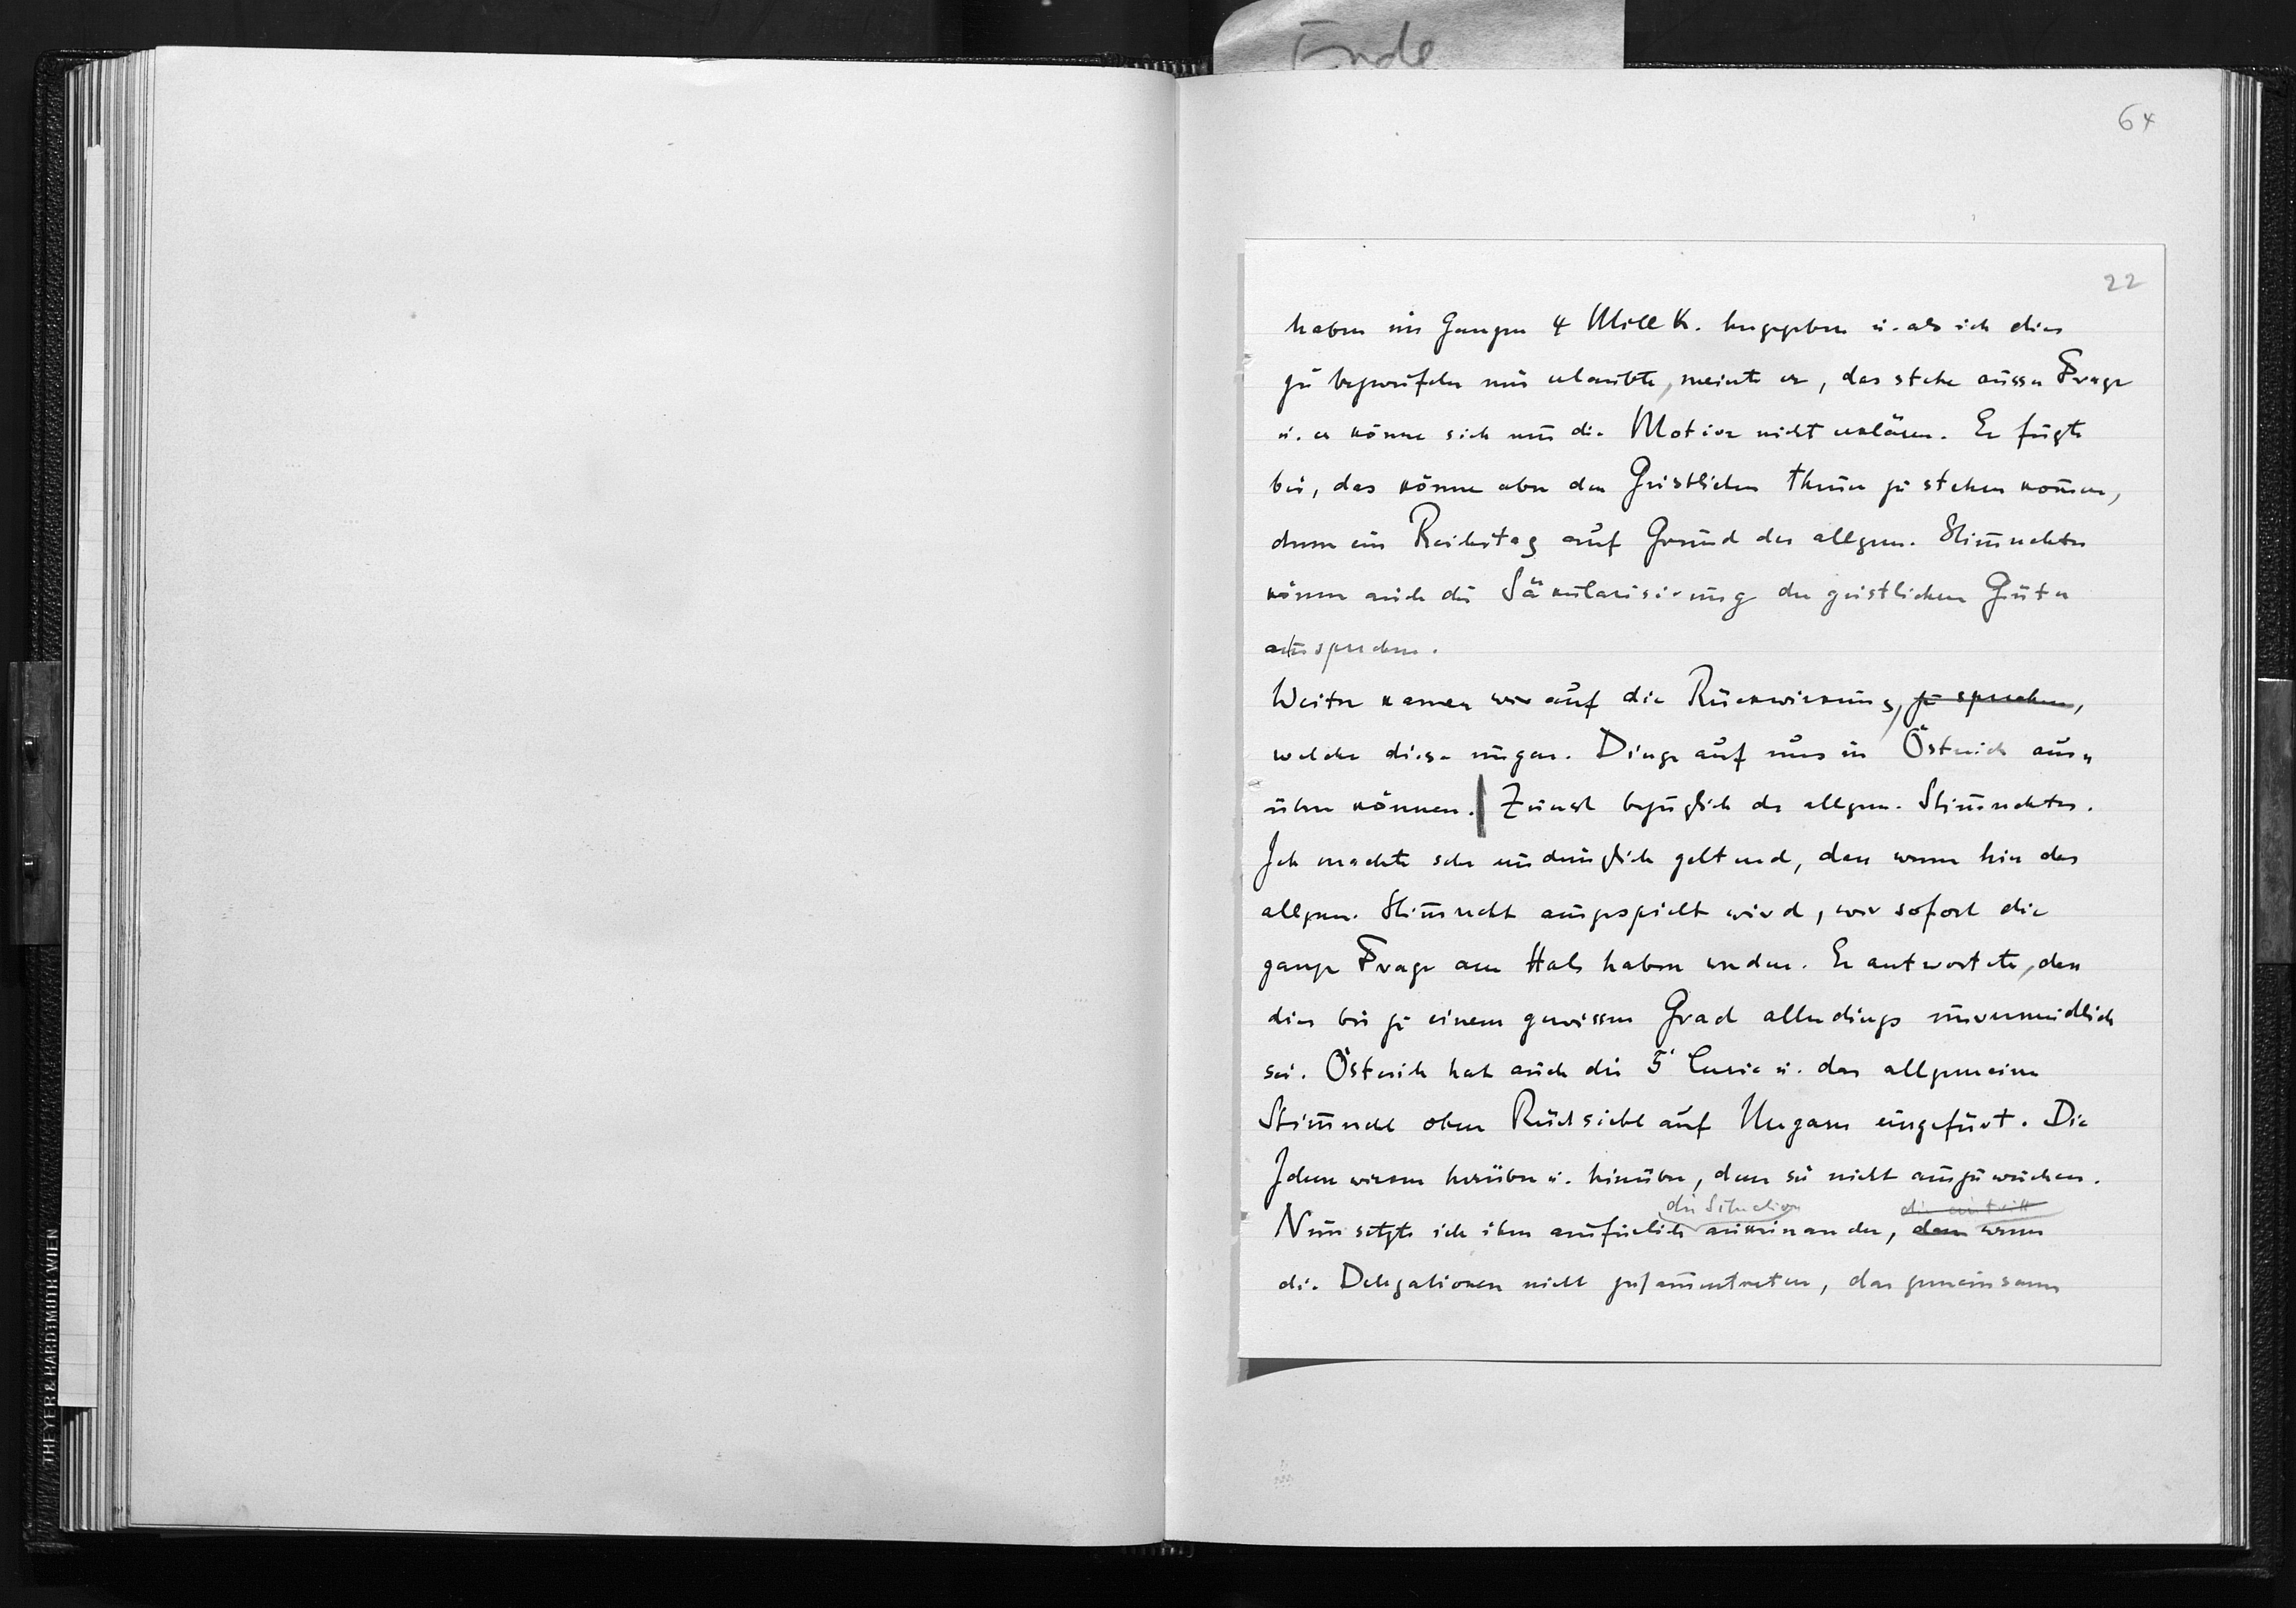 Ende
64
22
haben im Ganzen 4 Mill K. hergegeben u. als ich dies
zu bezweifeln mir erlaubte, meinte er, das stehe ausser Frage
u. er könne sich nur die Motive nicht erklären. Er fügte
bei, das könne aber den Geistlichen theuer zu stehen kom̄en,
denn ein Reichstag auf Grund des allgem. Stim̄rechtes
könne auch die Säkularisirung der geistlichen Güter
aussprechen.
Weiter kamen wir auf die Rückwirkung, zu sprechen,
welche diese ungar. Dinge auf uns in Österreich aus„
üben können. Zunächst bezüglich des allgem. Stim̄rechtes.
Ich machte sehr eindringlich geltend, dass wenn hier das
allgem. Stim̄recht ausgespielt wird, wir sofort die
ganze Frage am Hals haben werden. Er antwortete, dass
dies bis zu einem gewissen Grad allerdings unvermeidlich
sei. Österreich hat auch die 5te Curie u. das allgemeine
Stim̄recht ohne Rücksicht auf Ungarn eingefürt. Die
Ideen wirken herüber u. hinüber, dem sei nicht auszuweichen.
die Situation die eintritt
Nun setzte ich ihm ausfürlich auseinander, dass wenn
die Delegationen nicht zusam̄entreten, das gemeinsame
THEYER & HARDTMUTH WIEN